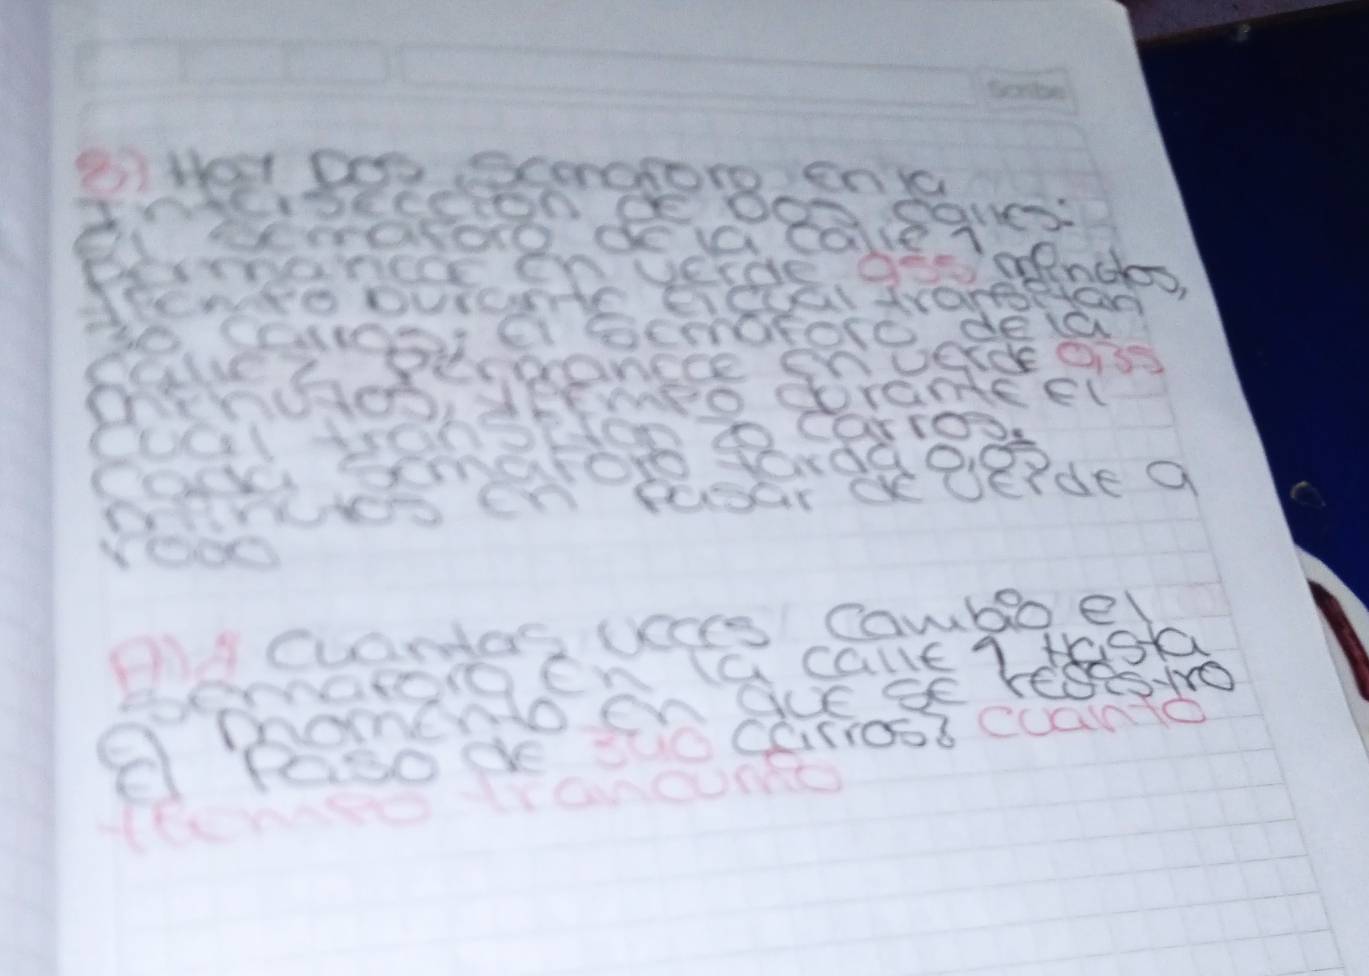 Scribe
8) Hay Dos Semaforo en la
Intersección de Dos calles:
El semaforo de la calle 1
Permanece en verde 955 minutos,
tiempo Durante el cual transitan
carros; el semaforo de la
calle 2 permanece en verde 0,35
minutos, tiempo durante el
cual transitan 20 carros.
cada semaforo tarda 0,05
minutos en pasar de verde a
rojo
A) ¿ Cuantas veces cambio el
semaforo en la calle 1 Hasta
el momento en que se registro
el Paso de 340 carros? cuanto
tiempo trancurrio